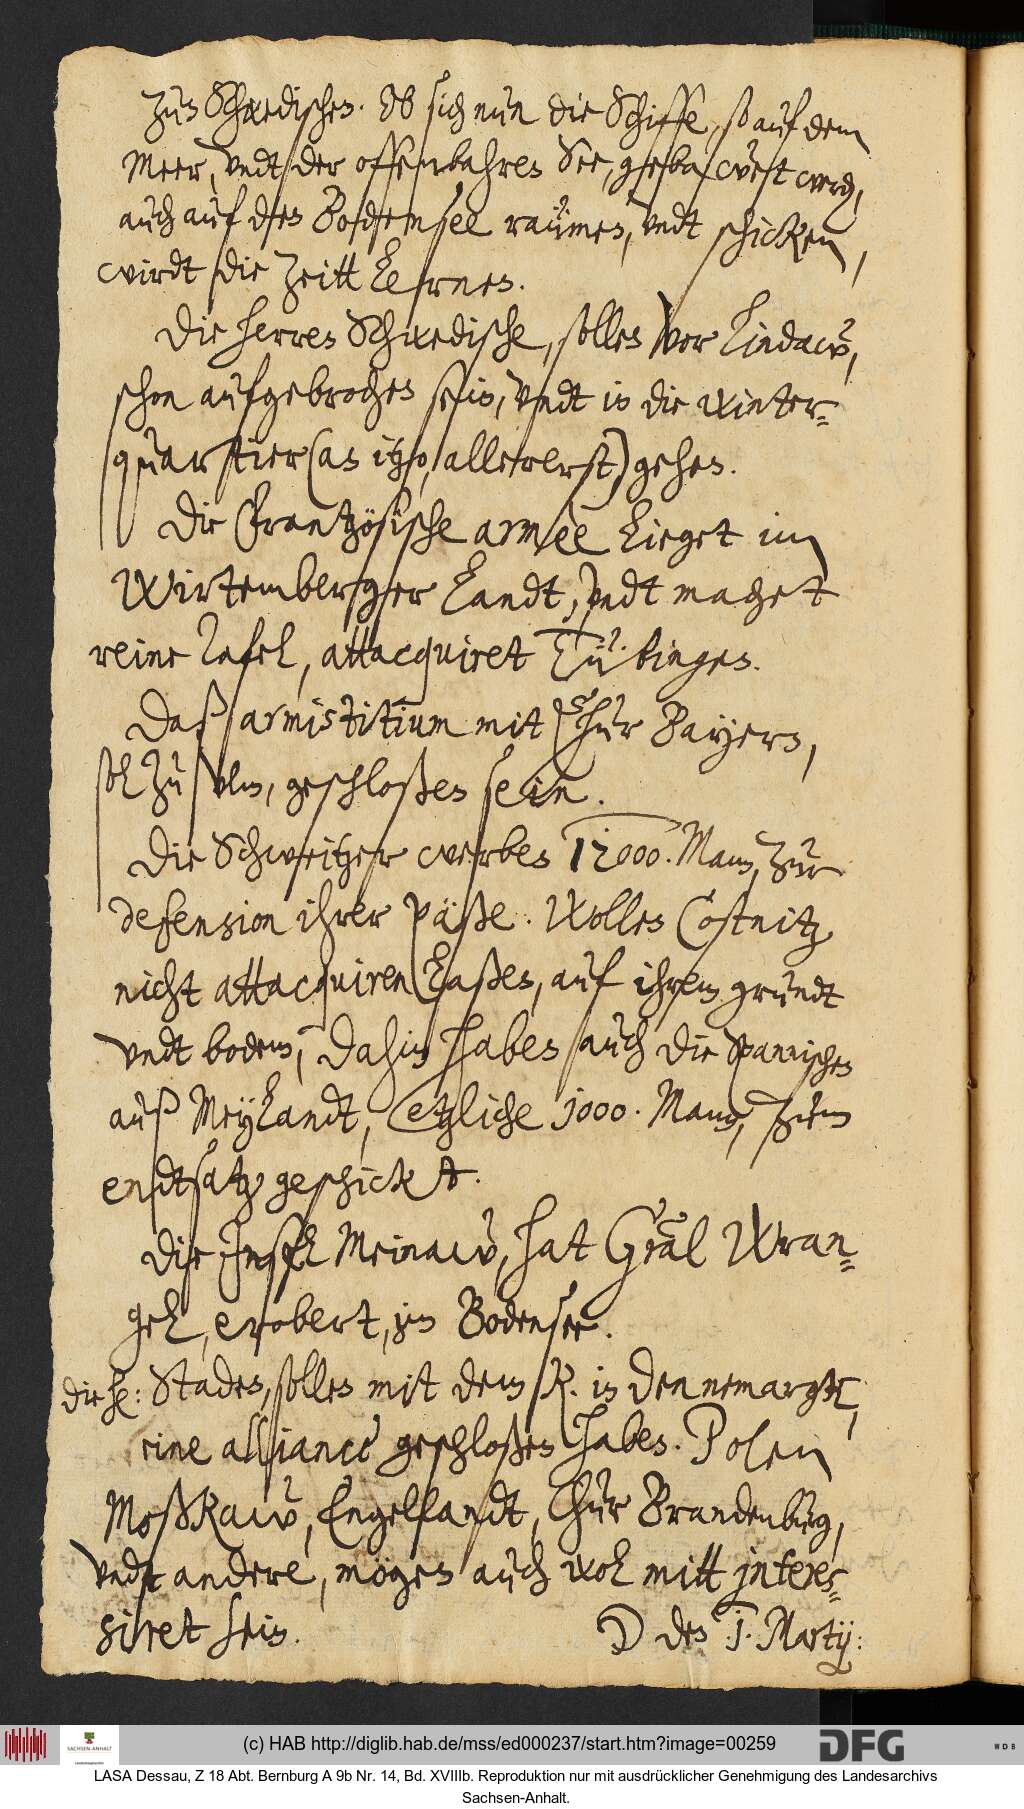 zun Schwedischen. Ob sich nun die Schiffe, so auf dem
Meer, vndt der offenbahren See, gebawet werden,
auch auf den Bodensee raümen, vndt schicken,
wirdt die Zeitt lernen.
Die herren Schwedische, sollen vor Lindaw,
schon aufgebrochen sein, vndt in die winter-
quartier (an itzo, allererst) gehen.
Die Frantzösische armèe lieget im
Wirtemberger Landt, vndt machet
reine Tafel, attacquiret Tübingen.
Daß armistitium mit Chur Bayern,
sol zu vlm, geschloßen sein.
Die Schweitzer werben 12000. Mann, zur
defension ihrer päße. Wollen Costnitz
nicht attacquiren laßen, auf ihrem grundt
vndt bodem, Dahin haben auch die Spannischen
auß Meylandt, etzliche 1000. Mann, zum
endtsatz geschickt.
Die Insel Meinaw, hat Gral Wran-
gel, erobert, im Bodensee.
die he: Staden, sollen mit dem K. in Dennemarck,
eine alliancè geschloßen haben. Polen
Moßkaw, Engellandt, Chur Brandenburg,
vndt andere, mögen auch wol mitt interes-
siret sein. D den 1. Martij:
(c) HAB http://diglib.hab.de/mss/ed000237/start.htm?image=00259
SACHSEN-ANHALT
DFG
WDB
LASA Dessau, Z 18 Abt. Bernburg A 9b Nr. 14, Bd. XVIIIb. Reproduktion nur mit ausdrücklicher Genehmigung des Landesarchivs
Sachsen-Anhalt.